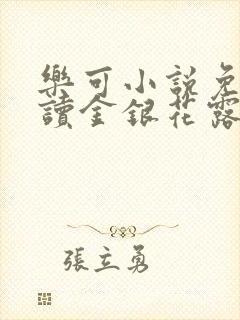 樂可小說免
讀金銀花露
張立勇